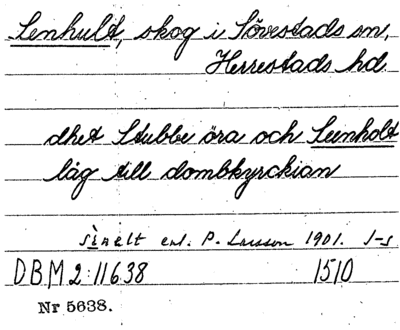 Lenhult, skog i Sövestads sn,
Herrestads hd.
dhet Stubbe öra och Leenholt
låg till dombkyrckian
enl. P. Larsson 1901. J-s
DBM 2:11638 1510
Nr 5638.